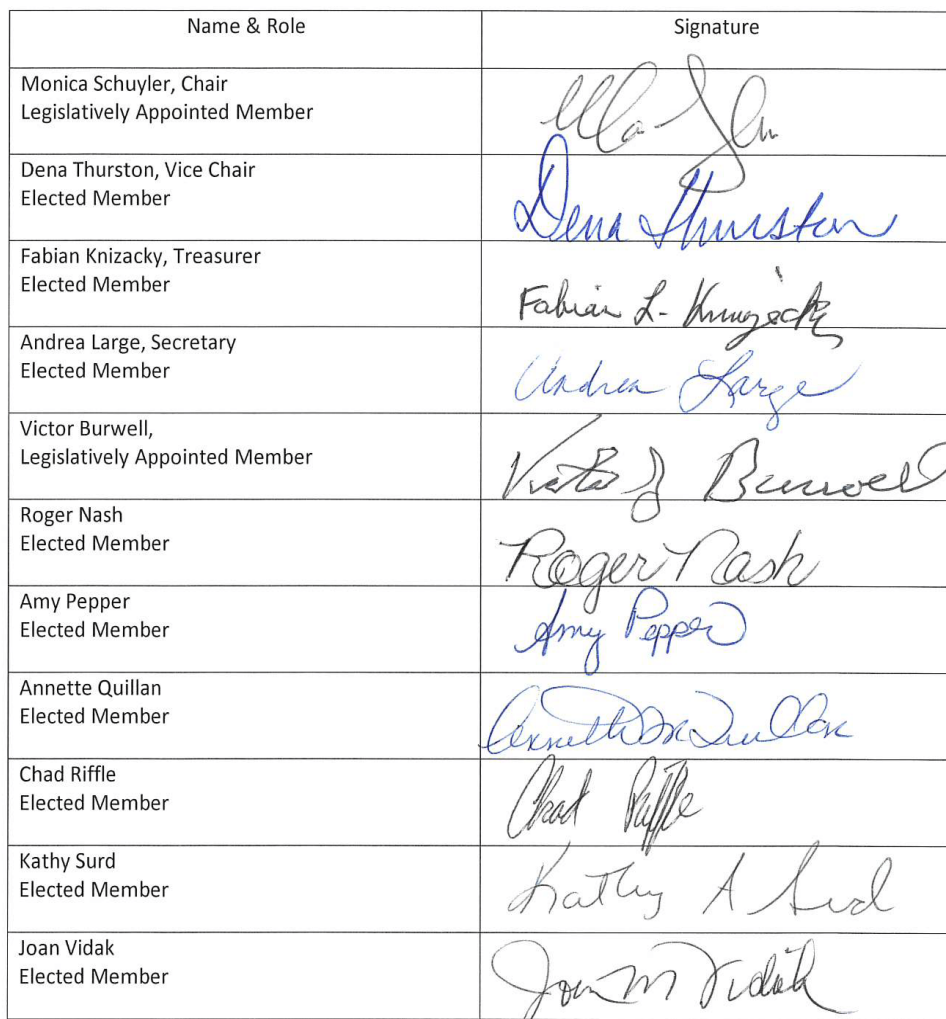 Name & Role
Signature
Monica Schuyler, Chair
Legislatively Appointed Member
Dena Thurston, Vice Chair
Elected Member
Dena Thurston
Fabian Knizacky, Treasurer
Elected Member
Fabian L. Knizacky
Andrea Large, Secretary
Elected Member
Andrea Large
Victor Burwell,
Legislatively Appointed Member
Victor J Burwell
Roger Nash
Elected Member
Roger Nash
Amy Pepper
Elected Member
Amy Pepper
Annette Quillan
Elected Member
Annette M Quillan
Chad Riffle
Elected Member
Chad Riffle
Kathy Surd
Elected Member
Kathy A Surd
Joan Vidak
Elected Member
Joan M Vidak